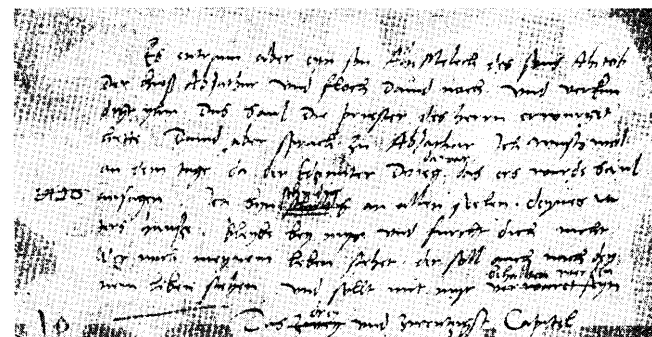 Es entran aber eyn son AhiMelech des sons Ahitob
der hies AbJathar und floch David nach und verkun
digt yhm das Saul die priester des herrn erwurget
hette David aber sprach zu AbJathar Ich wusts wol
da war
an dem tage da der Edomiter Doeg das ers wurde Saul
schuldig
ansagen. Ich byn an allen seelen deynes va
ters hauses. Bleybe bey myr und furcht dich nicht
Wer nach meynem leben stehet der soll auch nach dey
behalten werden
nem leben stehen und sollt mit myr verwaret seyn
drey
Das und zwentzigst Capitel